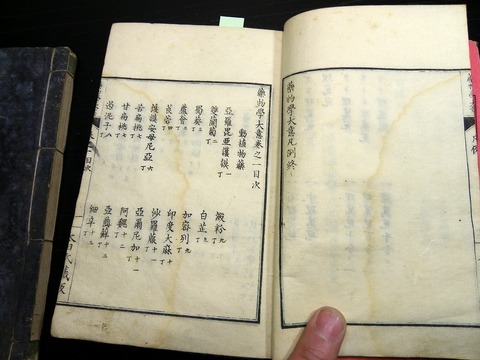 藥物學大意凡例終
藥物學大意卷之一目次
動植物藥
亞羅毘亞護謨 一丁
雙蘭菊 二丁
蜀葵 丁
蘆薈 三丁
莨菪 四丁
護謨安母尼亞 六丁
苦扁桃 七丁
甘扁桃 七丁
洗子 八丁
澱粉 九丁
白芷 九丁
加密列 九丁
印度大麻 十丁
沙羅 十丁
亞爾尼加 十一丁
阿魏 十二丁
亞 十三丁
細辛 十三丁
目次
氏藏版